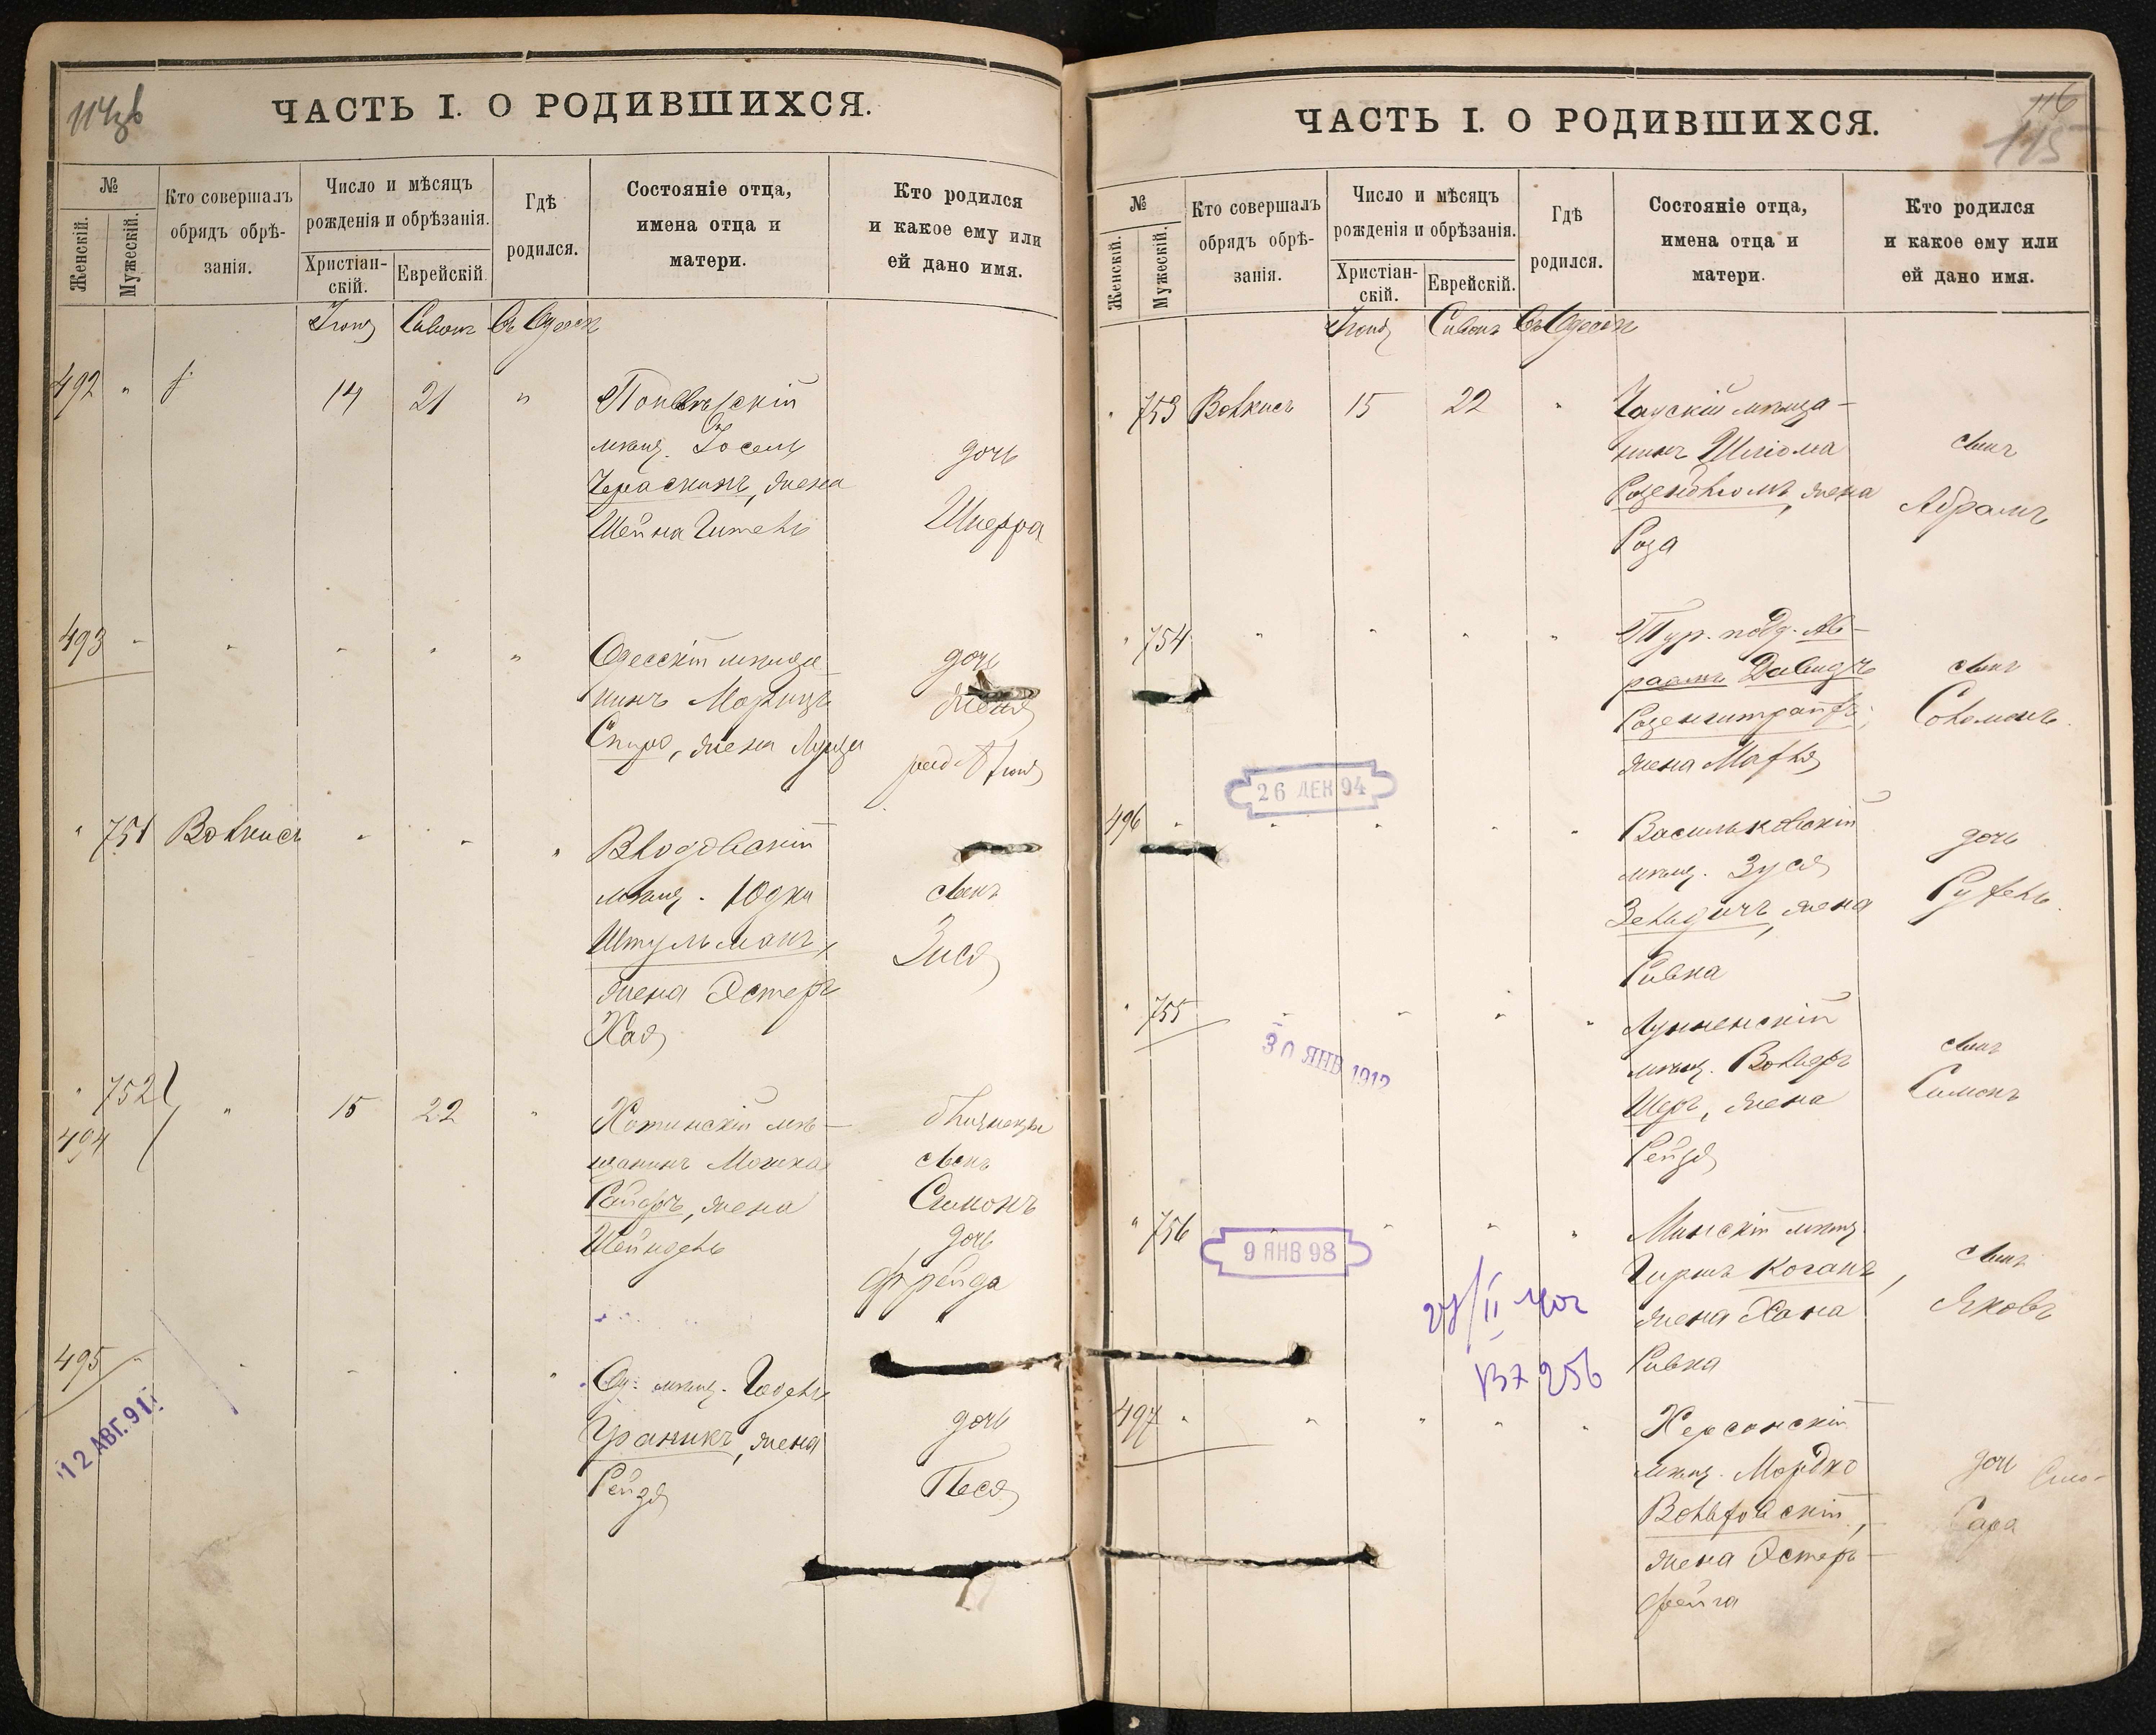 ЧАСТЬ I. О РОДИВШИХСЯ.
№
Женскій.
Мужескій.
Кто совершалъ
обрядъ обрѣ-
занія.
Число и мѣсяцъ
рожденія и обрѣзанія.
Христіан-
скій.
Еврейскій.
Гдѣ
родился.
Состояніе отца,
имена отца и
матери.
Кто родился
и какое ему или
ей дано имя.
Іюня Сивонъ Въ Одессѣ
492 " 14 21 "
мѣщ. Іосель
жена
Шейна Гитель
дочь
Шифра
493
Одесскій мѣща-
нинъ Морицъ
Спиро, жена Луиза
дочь
Женя
" 751 Волкисъ
Влодовскій
мѣщ. Юдка
Штульманъ,
жена Эстеръ
Хая
сынъ
Зися
" 752
494
" 15 22 "
Хотинскій мѣ-
щанинъ Мошка
жена
Шейндель
близнецы
сынъ
Симонъ
дочь
Фрейда
495
12 АВГ. 91
Од. мѣщ. Годель
Ураникъ, жена
Рейзя
дочь
Песя
ЧАСТЬ I. О РОДИВШИХСЯ.
116
115
№
Женскій.
Мужескій.
Кто совершалъ
обрядъ обрѣ-
занія.
Число и мѣсяцъ
рожденія и обрѣзанія.
Христіан-
скій.
Еврейскій.
Гдѣ
родился.
Состояніе отца,
имена отца и
матери.
Кто родился
и какое ему или
ей дано имя.
Іюня Сивонъ Въ Одессѣ
" 753 Волкисъ 15 22 "
Чаускій мѣща-
нинъ Шліома
Розенблюмъ, жена
Роза
сынъ
Абрамъ
" 754
Тур. подд. Ав-
раамъ Давидъ
жена Марья
сынъ
Соломонъ.
26 ДЕК 94
496
Васильковскій
мѣщ. Зуся
Зельдичъ, жена
Ривка
дочь
Руфель.
" 755
30 ЯНВ 1912
Лунненскій
мѣщ. Вольфъ
Шеръ, жена
Рейзя
сынъ
Симонъ
" 756
9 ЯНВ 98
Минскій мѣщ.
Гиршъ Коганъ,
жена Хана
Ривка
сынъ
Яковъ
256
497
Херсонскій
мѣщ. Мордко
Вольфовскій,
жена Эстеръ-
Фейга
дочь
Сара